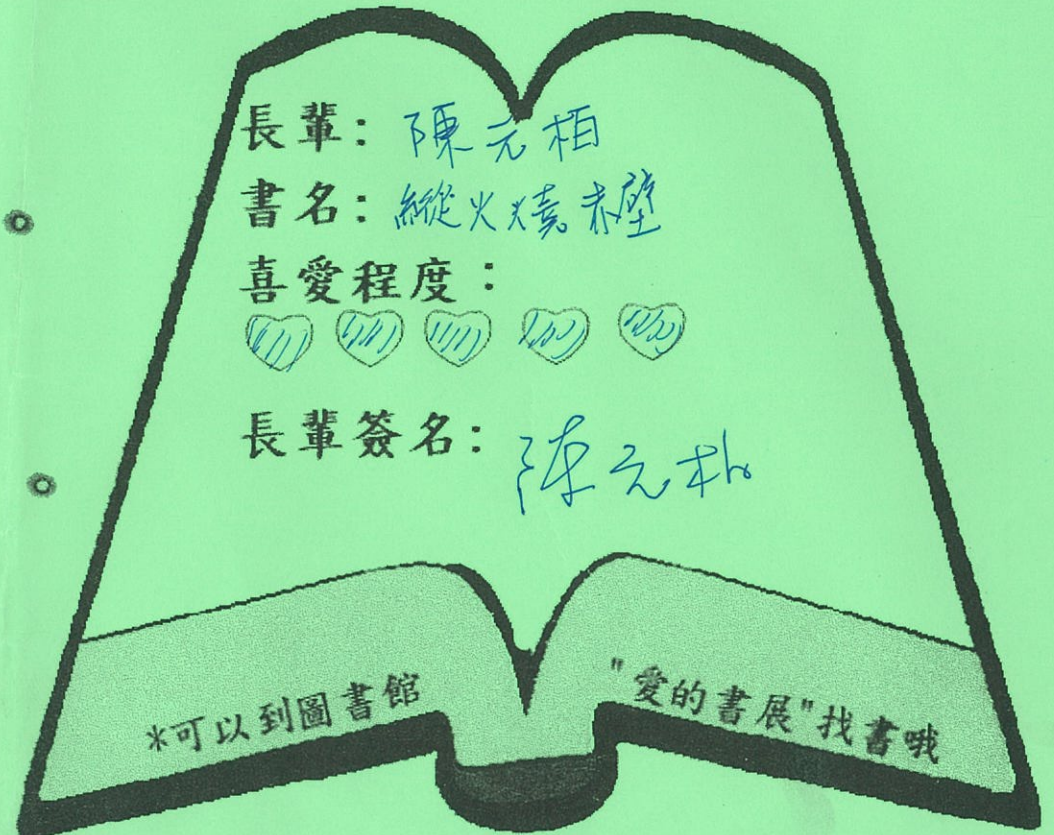 長輩：陳元栢
書名：縱火燒赤壁
喜愛程度：
長輩簽名：陳元栢
*可以到圖書館
"愛的書展"找書哦